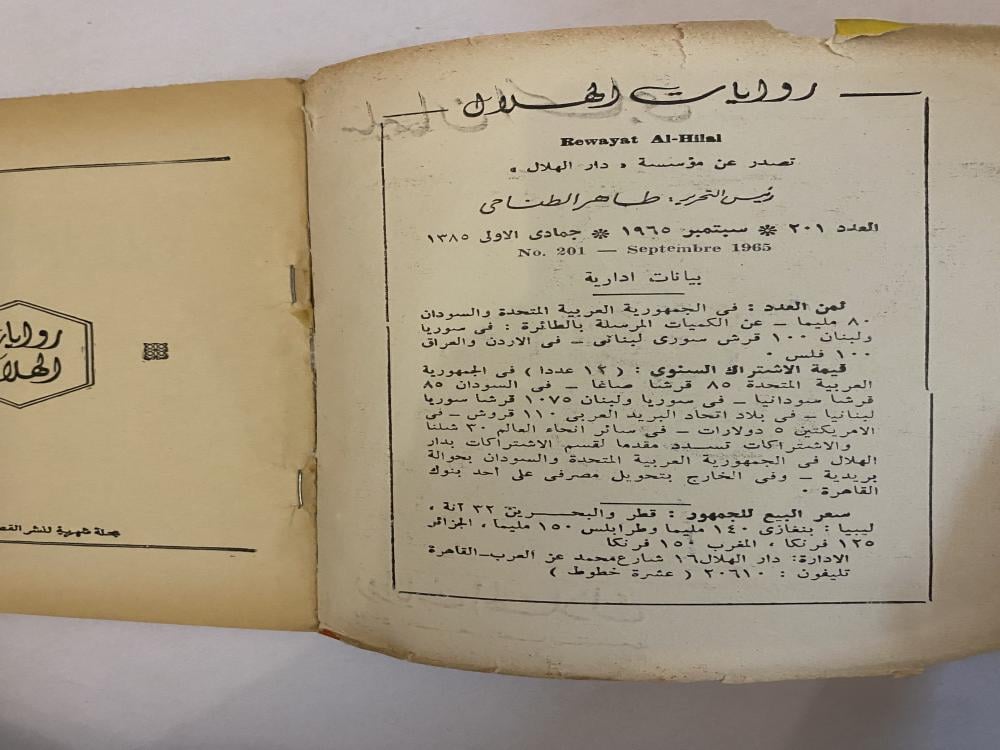 روايات الهلال
Rewayat Al-Hilal
تصدر عن مؤسسة « دار الهلال »
رئيس التحرير: طاهر الطناحى
العدد ٢٠١ * سبتمبر ١٩٦٥ * جمادى الاولى ١٣٨٥
No. 201 — Septembre 1965
بيانات ادارية
ثمن العدد : فى الجمهورية العربية المتحدة والسودان
٨٠ مليما – عن الكميات المرسلة بالطائرة : فى سوريا
ولبنان ١٠٠ قرش سورى لبنانى – فى الاردن والعراق
١٠٠ فلس ٠
قيمة الاشتراك السنوى : ( ١٢ عددا ) فى الجمهورية
العربية المتحدة ٨٥ قرشا صاغا – فى السودان ٨٥
قرشا سودانيا – فى سوريا ولبنان ١٠٧٥ قرشا سوريا
لبنانيا – فى بلاد اتحاد البريد العربى ١١٠ قروش – فى
الامريكتين ٥ دولارات – فى سائر انحاء العالم ٣٠ شلنا
والاشتراكات تسدد مقدما لقسم الاشتراكات بدار
الهلال فى الجمهورية العربية المتحدة والسودان بحوالة
بريدية – وفى الخارج بتحويل مصرفى على أحد بنوك
القاهرة ٠
سعر البيع للجمهور : قطر والبحرين ٣٢ آنة ،
ليبيا : بنغازى ١٤٠ مليما وطرابلس ١٥٠ مليما ، الجزائر
١٢٥ فرنكا ، المغرب ١٥٠ فرنكا
الادارة: دار الهلال ١٦ شارع محمد عز العرب–القاهرة
تليفون : ٢٠٦١٠ ( عشرة خطوط )
روايات
الهلال
مجلة شهرية لنشر